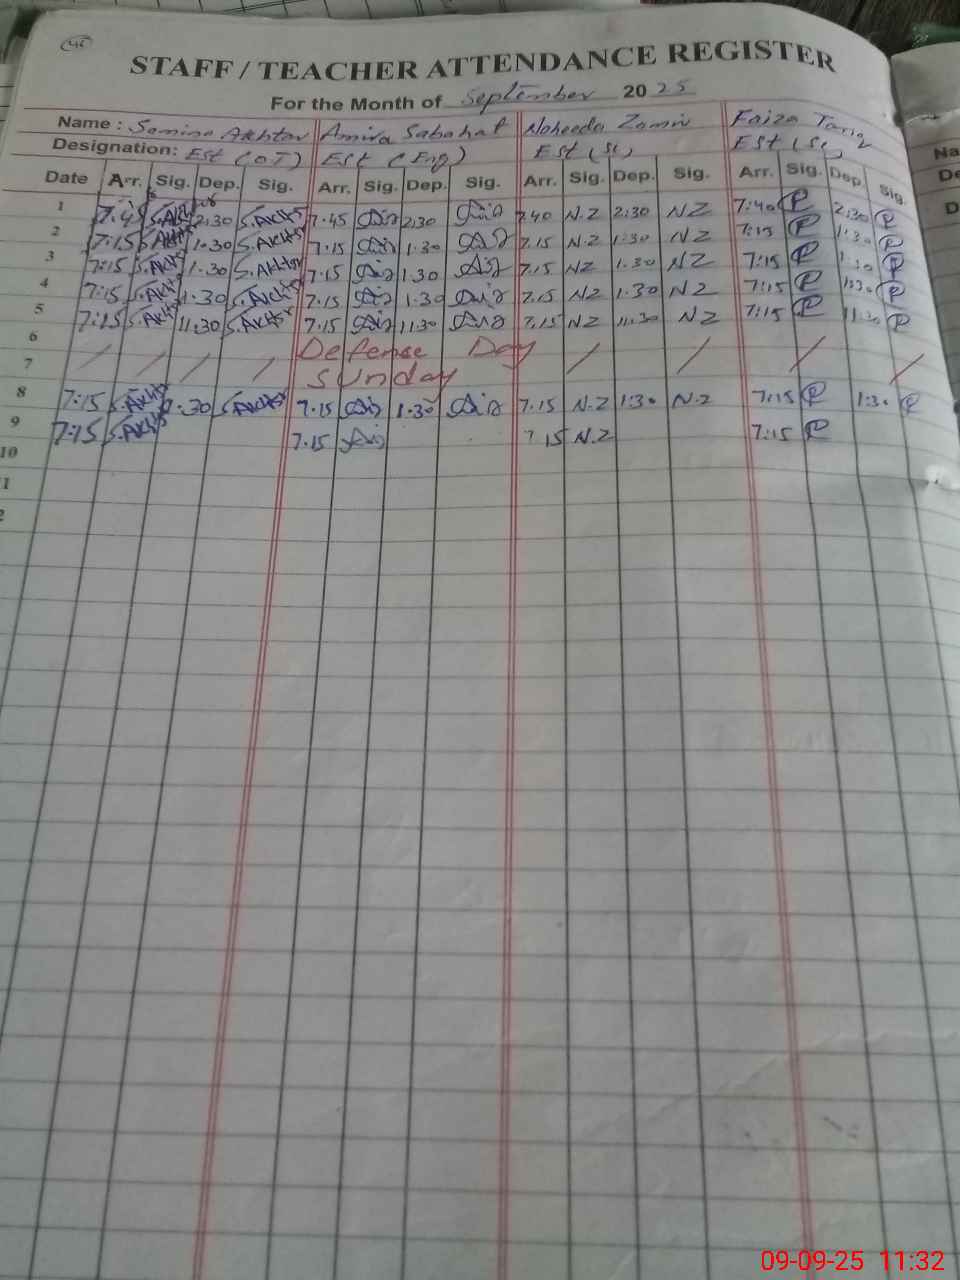 46
STAFF / TEACHER ATTENDANCE REGISTER
For the Month of September 2025
Name : Samina Akhtar Amira Sabahat Naheeda Zamir Faiza Tariq
Designation: Est (OT) Est (Eng) Est (Sc) Est (Sc)
Date Arr. Sig. Dep. Sig. Arr. Sig. Dep. Sig. Arr. Sig. Dep. Sig. Arr. Sig. Dep. Sig.
1 7:45 S.AKHtar 2:30 S.AKHtr 7.45 2:30 7.40 N.Z 2:30 NZ 7:40 2:30
2 7:15 S.AKHtr 1:30 S.AKHtr 7.15 1.30 7.15 N.Z 1:30 NZ 7:15 1:30
3 7:15 S.AKHtr 1.30 S.AKHtr 7.15 1.30 7.15 NZ 1.30 NZ 7:15 1:30
4 7:15 S.AKHtr 1.30 S.AKHtr 7.15 1.30 7.15 NZ 1.30 NZ 7:15 1:30
5 7:15 S.AKHtr 11:30 S.AKHtr 7.15 11:30 7.15 NZ 11:30 NZ 7:15 11:30
6 Defense Day
7 Sunday
8 7:15 S.AKHtr 1:30 S.AKHtr 7.15 1.30 7.15 N.Z 1:30 N.Z 7:15 1:30
9 7:15 S.AKHtr 7.15 7 15 N.Z 7:15
10
1
2
Na
De
D
09-09-25 11:32